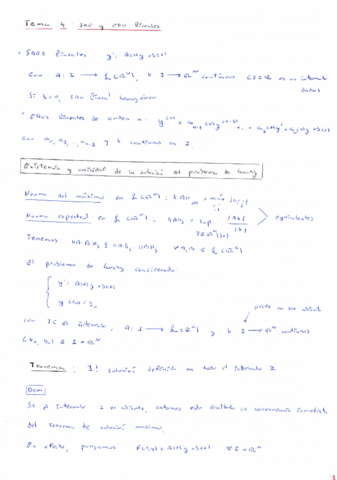 Tema 4: SDO y EDO lineales
• SDOs lineales: y' = A(x)y + b(x)
Con A: I → L(ℝⁿ), b: I → ℝⁿ continuas (I ⊂ ℝ es un intervalo
Si b=0, SDO lineal homogéneo
• EDOs lineales de orden n: y⁽ⁿ⁾ = aₙ₋₁(x) y⁽ⁿ⁻¹⁾ + ... + a₁(x)y' + a₀(x)y + b(x)
con a₀, a₁, ..., aₙ₋₁ y b continuas en I.
Existencia y unicidad de la solución del problema de Cauchy
Norma del máximo en L(ℝⁿ): ‖A‖∞ = máx |aᵢⱼ|
Norma espectral en L(ℝⁿ): ‖A‖₂ = sup |Az| / |z|
z ∈ ℝⁿ\{0}
equivalentes
Tenemos ‖AB‖₂ ≤ ‖A‖₂ · ‖B‖₂ ∀A,B ∈ L(ℝⁿ)
El problema de Cauchy considerado:
y' = A(x)y + b(x)
y(x₀) = y₀
puede no ser abierto
con I ⊂ ℝ intervalo, A: I → L(ℝⁿ) y b: I → ℝⁿ continuas
(x₀, y₀) ∈ I × ℝⁿ
Teorema: ∃! solución definida en todo el intervalo I
Dem
Si el intervalo I es abierto, entonces este resultado es consecuencia inmediata
del Teorema de solución maximal.
En efecto, pongamos F(x,y) = A(x)y + b(x)
1